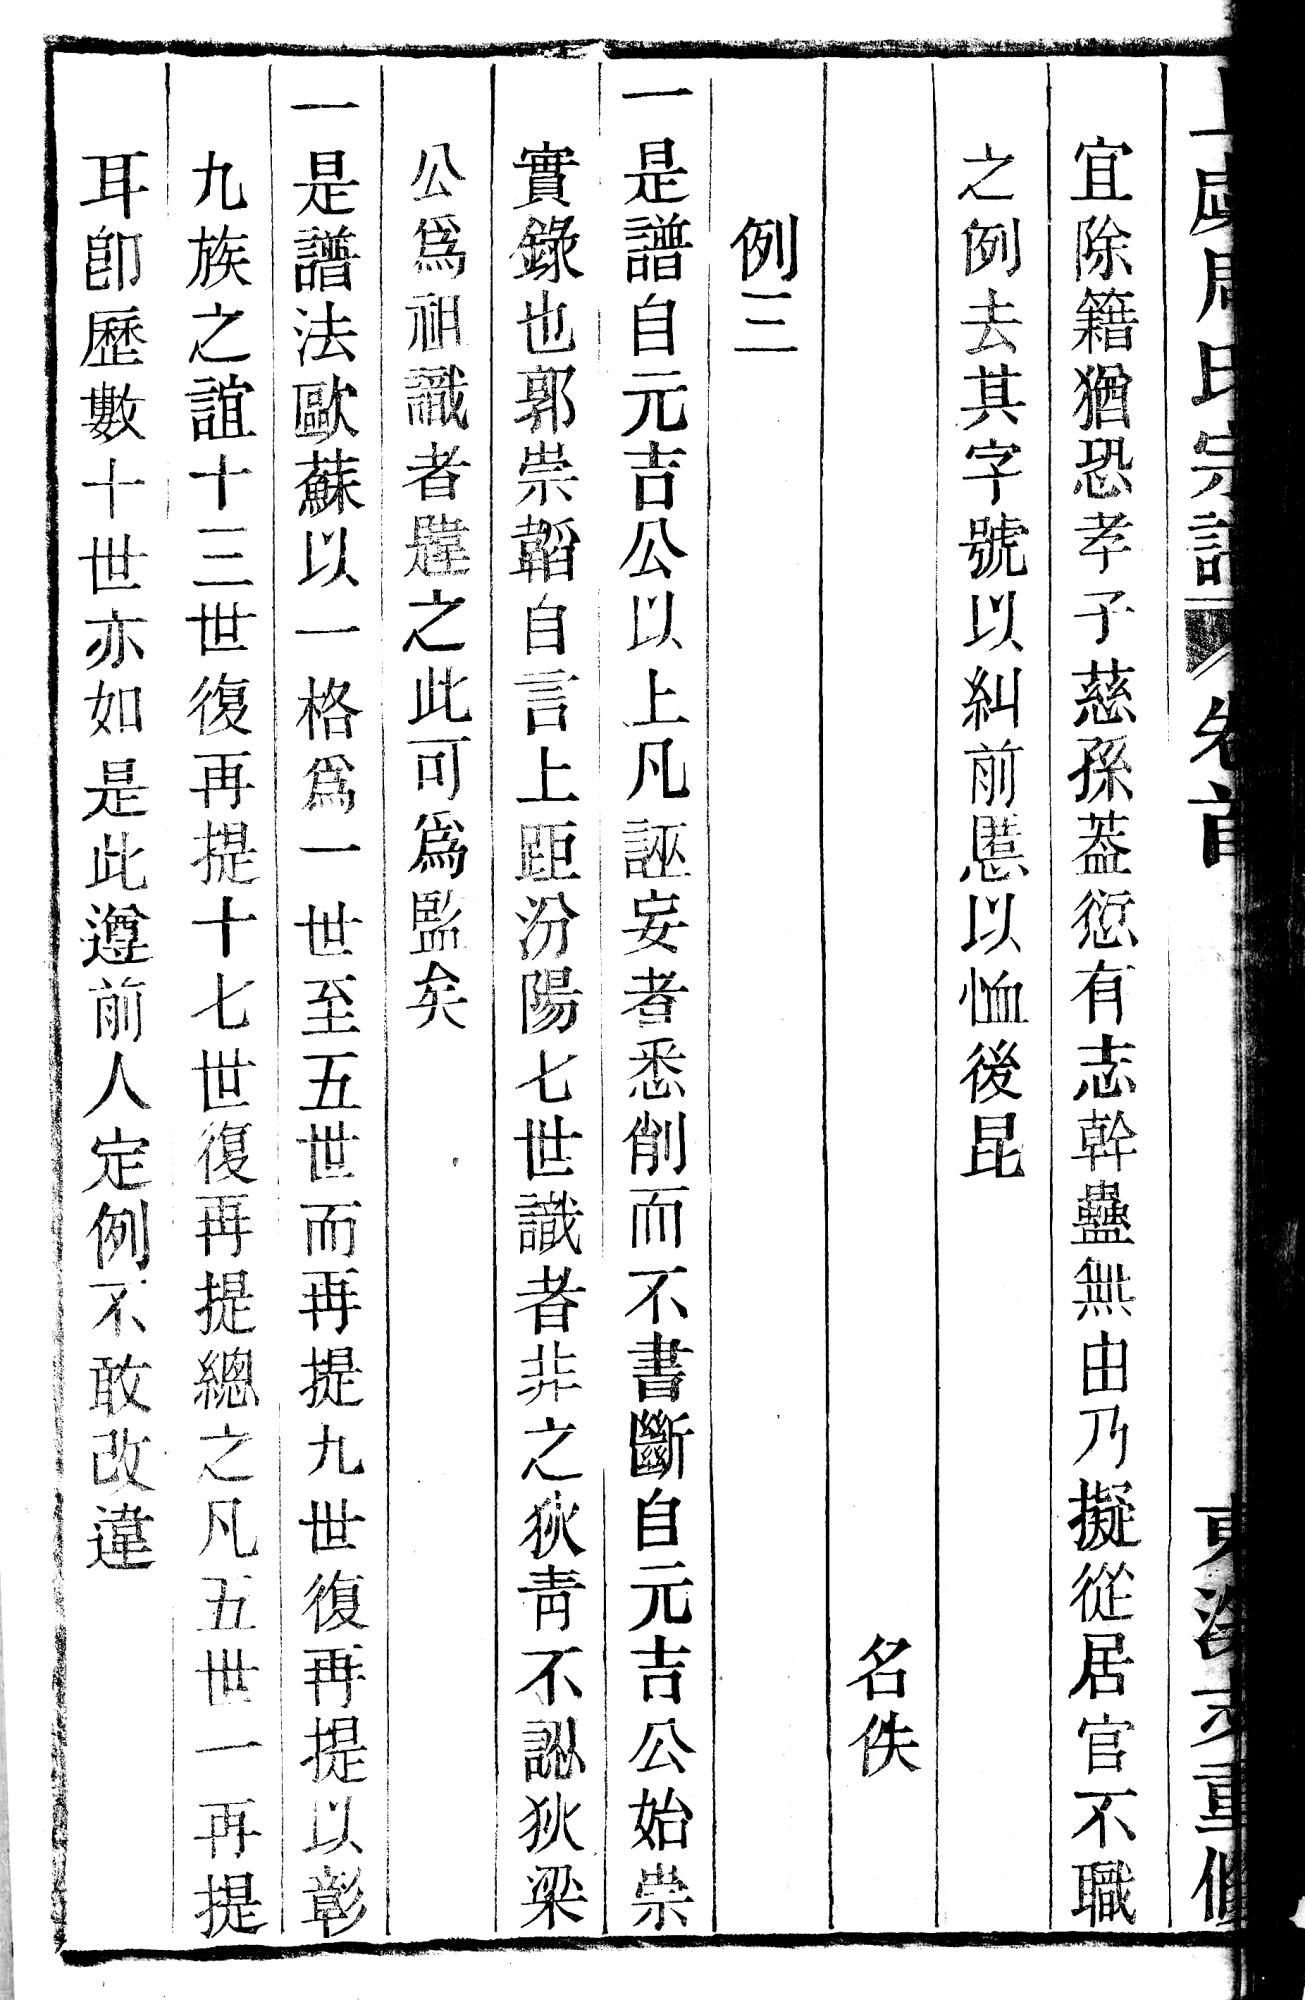 上虞周氏宗譜 卷首
宜除籍猶恐孝子慈孫葢愆有志幹蠱無由乃擬從居官不職
之例去其字號以糾前愳以恤後昆
名佚
例三
一是譜自元吉公以上凡誣妄者悉削而不書斷自元吉公始崇
實錄也郭崇韜自言上距汾陽七世識者非之狄靑不認狄梁
公爲祖識者韙之此可爲監矣
一是譜法歐蘇以一格爲一世至五世而再提九世復再提以彰
九族之誼十三世復再提十七世復再提總之凡五世一再提
耳卽歷數十世亦如是此遵前人定例不敢改違